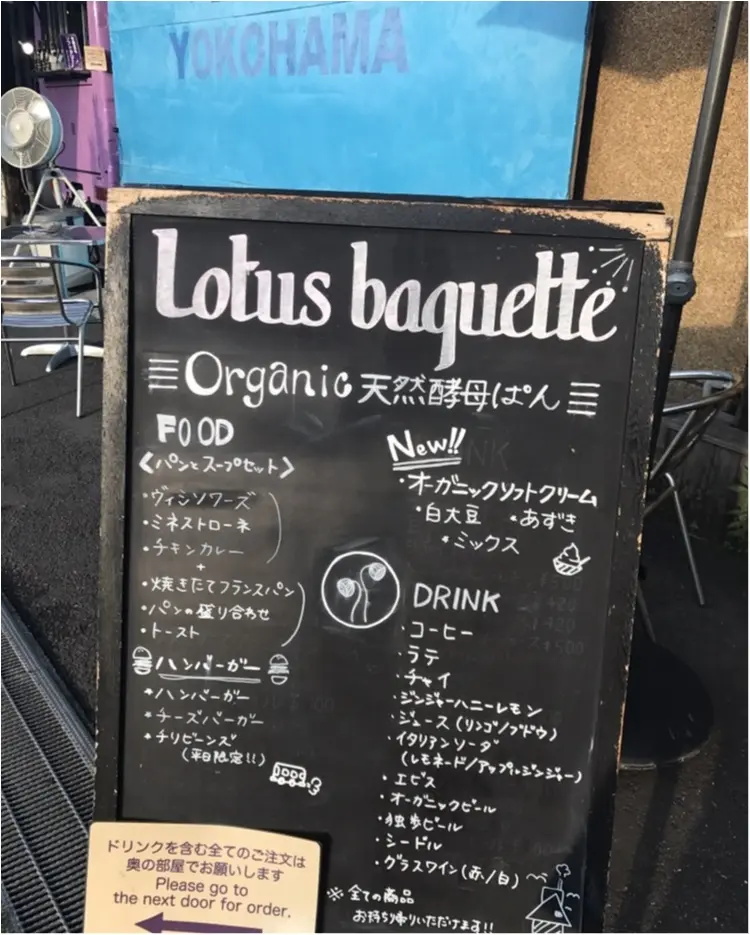 YOKOHAMA
Lotus baguette
Organic 天然酵母ぱん
FOOD
〈パンとスープセット〉
・ヴィシソワーズ
・ミネストローネ
・チキンカレー
+
・焼きたてフランスパン
・パンの盛り合わせ
・トースト
ハンバーガー
・ハンバーガー
・チーズバーガー
・チリビーンズ
(平日限定!!)
New!!
・オーガニックソフトクリーム
・白大豆 ・あずき
・ミックス
DRINK
・コーヒー
・ラテ
・チャイ
・ジンジャーハニーレモン
・ジュース(リンゴ/ブドウ)
・イタリアンソーダ
(レモネード/アップルジンジャー)
・エビス
・オーガニックビール
・独歩ビール
・シードル
・グラスワイン(赤/白)
※全ての商品
お持ち帰りいただけます!!
ドリンクを含む全てのご注文は
奥の部屋でお願いします
Please go to
the next door for order.